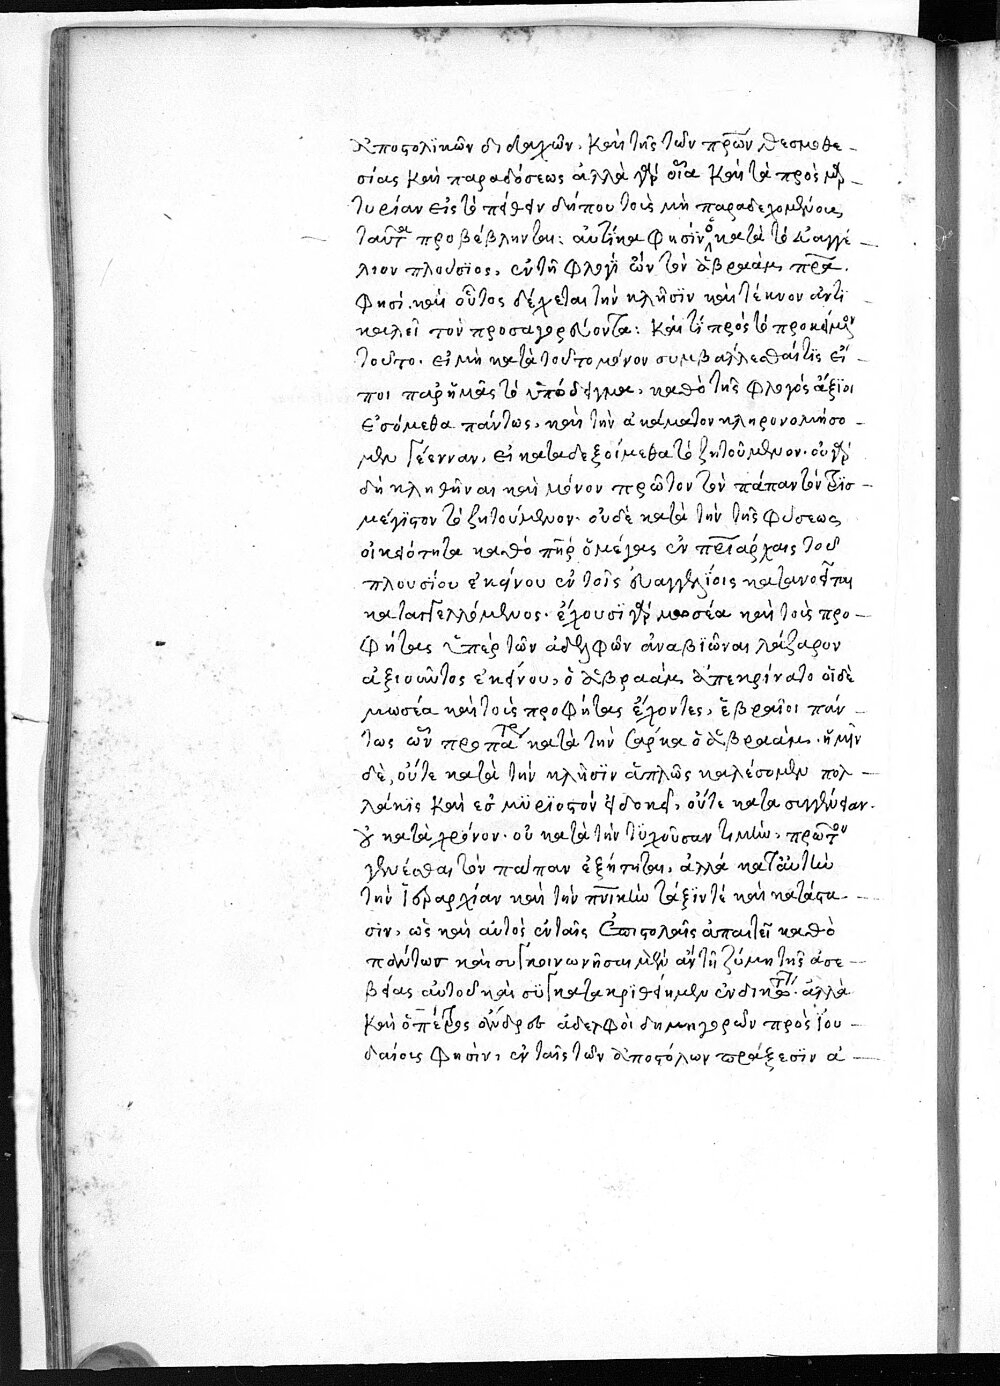 ἀποστολικῶν διδαχῶν. καὶ τῆς τῶν πρων θεσμοθε-
σίας καὶ παραδόσεως ἀλλὰ γὰρ οἷα καὶ τὰ πρὸς μαρ-
τυρίαν εἰς τὸ πεῖθειν δήπου τοὺς μὴ παραδεχομένους
ταῦτα προβέβληνται: αὐτίκα φησὶν ὁ κατὰ τὸ εὐαγγέ-
λιον πλούσιος, ἐν τῇ φλογὶ ὢν τὸν ἀβραὰμ πρα.
φησὶ. καὶ οὗτος δέχεται τὴν κλῆσιν καὶ τέκνον ἀντι
καλεῖ τὸν προσαγορεύοντα: καὶ τί πρὸς τὸ προκείμενον
τοῦτο. εἰ μὴ κατὰ τοῦτο μόνον συμβάλλεσθαί τις εἴ-
ποι παρ' ἡμᾶς τὸ ὑπόδειγμα, καθὸ τῆς φλογὸς ἄξιοι
ἐσόμεθα πάντως, καὶ τὴν ἀκάματον κληρονομήσο-
μεν γέενναν, εἰ καταδεξοίμεθα τὸ ζητούμενον. οὐ γὰρ
δὴ κληθῆναι καὶ μόνον πρῶτον τὸν πάπαν τὸν τρισ-
μέγιστον τὸ ζητούμενον. οὐδὲ κατὰ τὴν τῆς φύσεως
οἰκειότητα καθὸ πηρ ὁ μέγας ἐν πριάρχαις τοῦ
πλουσίου ἐκείνου ἐν τοῖς εὐαγγελίοις κατανοεῖται
καταστελλόμενος. ἔχουσι γὰρ μωσέα καὶ τοὺς προ-
φήτας ὑπὲρ τῶν ἀδελφῶν ἀναβιῶναι λάζαρον
ἀξιοῦντος ἐκείνου, ὁ ἀβραὰμ ἀπεκρίνατο οἱ δὲ
μωσέα καὶ τοὺς προφήτας ἔχοντες, ἑβραῖοι πάν-
τως ὧν προπάτωρ κατὰ τὴν σάρκα ὁ ἀβραάμ. ἡμῖν
δὲ, οὔτε κατὰ τὴν κλῆσιν ἁπλῶς καλέσομεν πολ-
λάκις καὶ ἐσ μυριοστὸν εἰ δοκεῖ, οὔτε κατὰ συγγένειαν.
οὐ κατὰ χρόνον. οὐ κατὰ τὴν τυχοῦσαν τιμὴν, πρῶτον
γενέσθαι τὸν πάπαν ἐξήτηται, ἀλλὰ κατ' αὐτὴν
τὴν ἱεραρχίαν καὶ τὴν πνικὴν τάξιν τὲ καὶ κατάστα-
σιν, ὡς καὶ αὐτὸς ἐν ταῖς ἐπιστολαῖς ἀπαιτεῖ καθὸ
πάντως καὶ συγκοινωνῆσαι μὲν ἂν τῇ ζύμῃ τῆς ἀσε-
βείας αὐτοῦ καὶ συγκατακριθείημεν ἐνδίκως. ἀλλὰ
καὶ ὁ πέτρος ἄνδρεσ ἀδελφοὶ δημηγορῶν πρὸς ἰου-
δαίους φησὶν, ἐν ταῖς τῶν ἀποστόλων πράξεσιν ἀ-